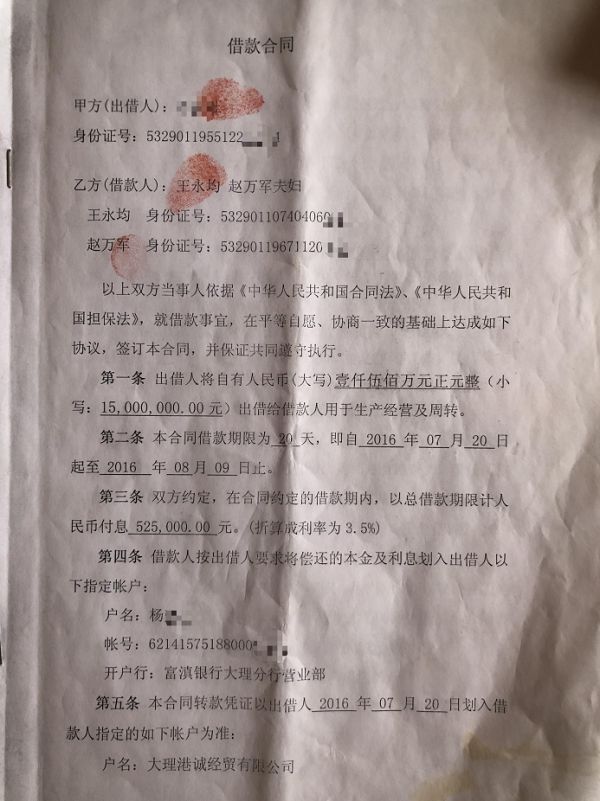 借款合同
甲方(出借人):
身份证号: 5329011955122 1
乙方(借款人): 王永均 赵万军夫妇
王永均 身份证号: 532901107404060
赵万军 身份证号: 53290119671120
以上双方当事人依据《中华人民共和国合同法》、《中华人民共和
国担保法》,就借款事宜,在平等自愿、协商一致的基础上达成如下
协议,签订本合同,并保证共同遵守执行。
第一条 出借人将自有人民币(大写)壹仟伍佰万元正元整(小
写: 15,000,000.00 元)出借给借款人用于生产经营及周转。
第二条 本合同借款期限为 20 天,即自 2016 年 07 月 20 日
起至 2016 年 08 月 09 日止。
第三条 双方约定,在合同约定的借款期内,以总借款期限计人
民币付息 525,000.00 元。(折算成利率为 3.5%)
第四条 借款人按出借人要求将偿还的本金及利息划入出借人以
下指定帐户:
户名: 杨
帐号: 62141575188000
开户行: 富滇银行大理分行营业部
第五条 本合同转款凭证以出借人 2016 年 07 月 20 日划入借
款人指定的如下帐户为准:
户名: 大理港诚经贸有限公司